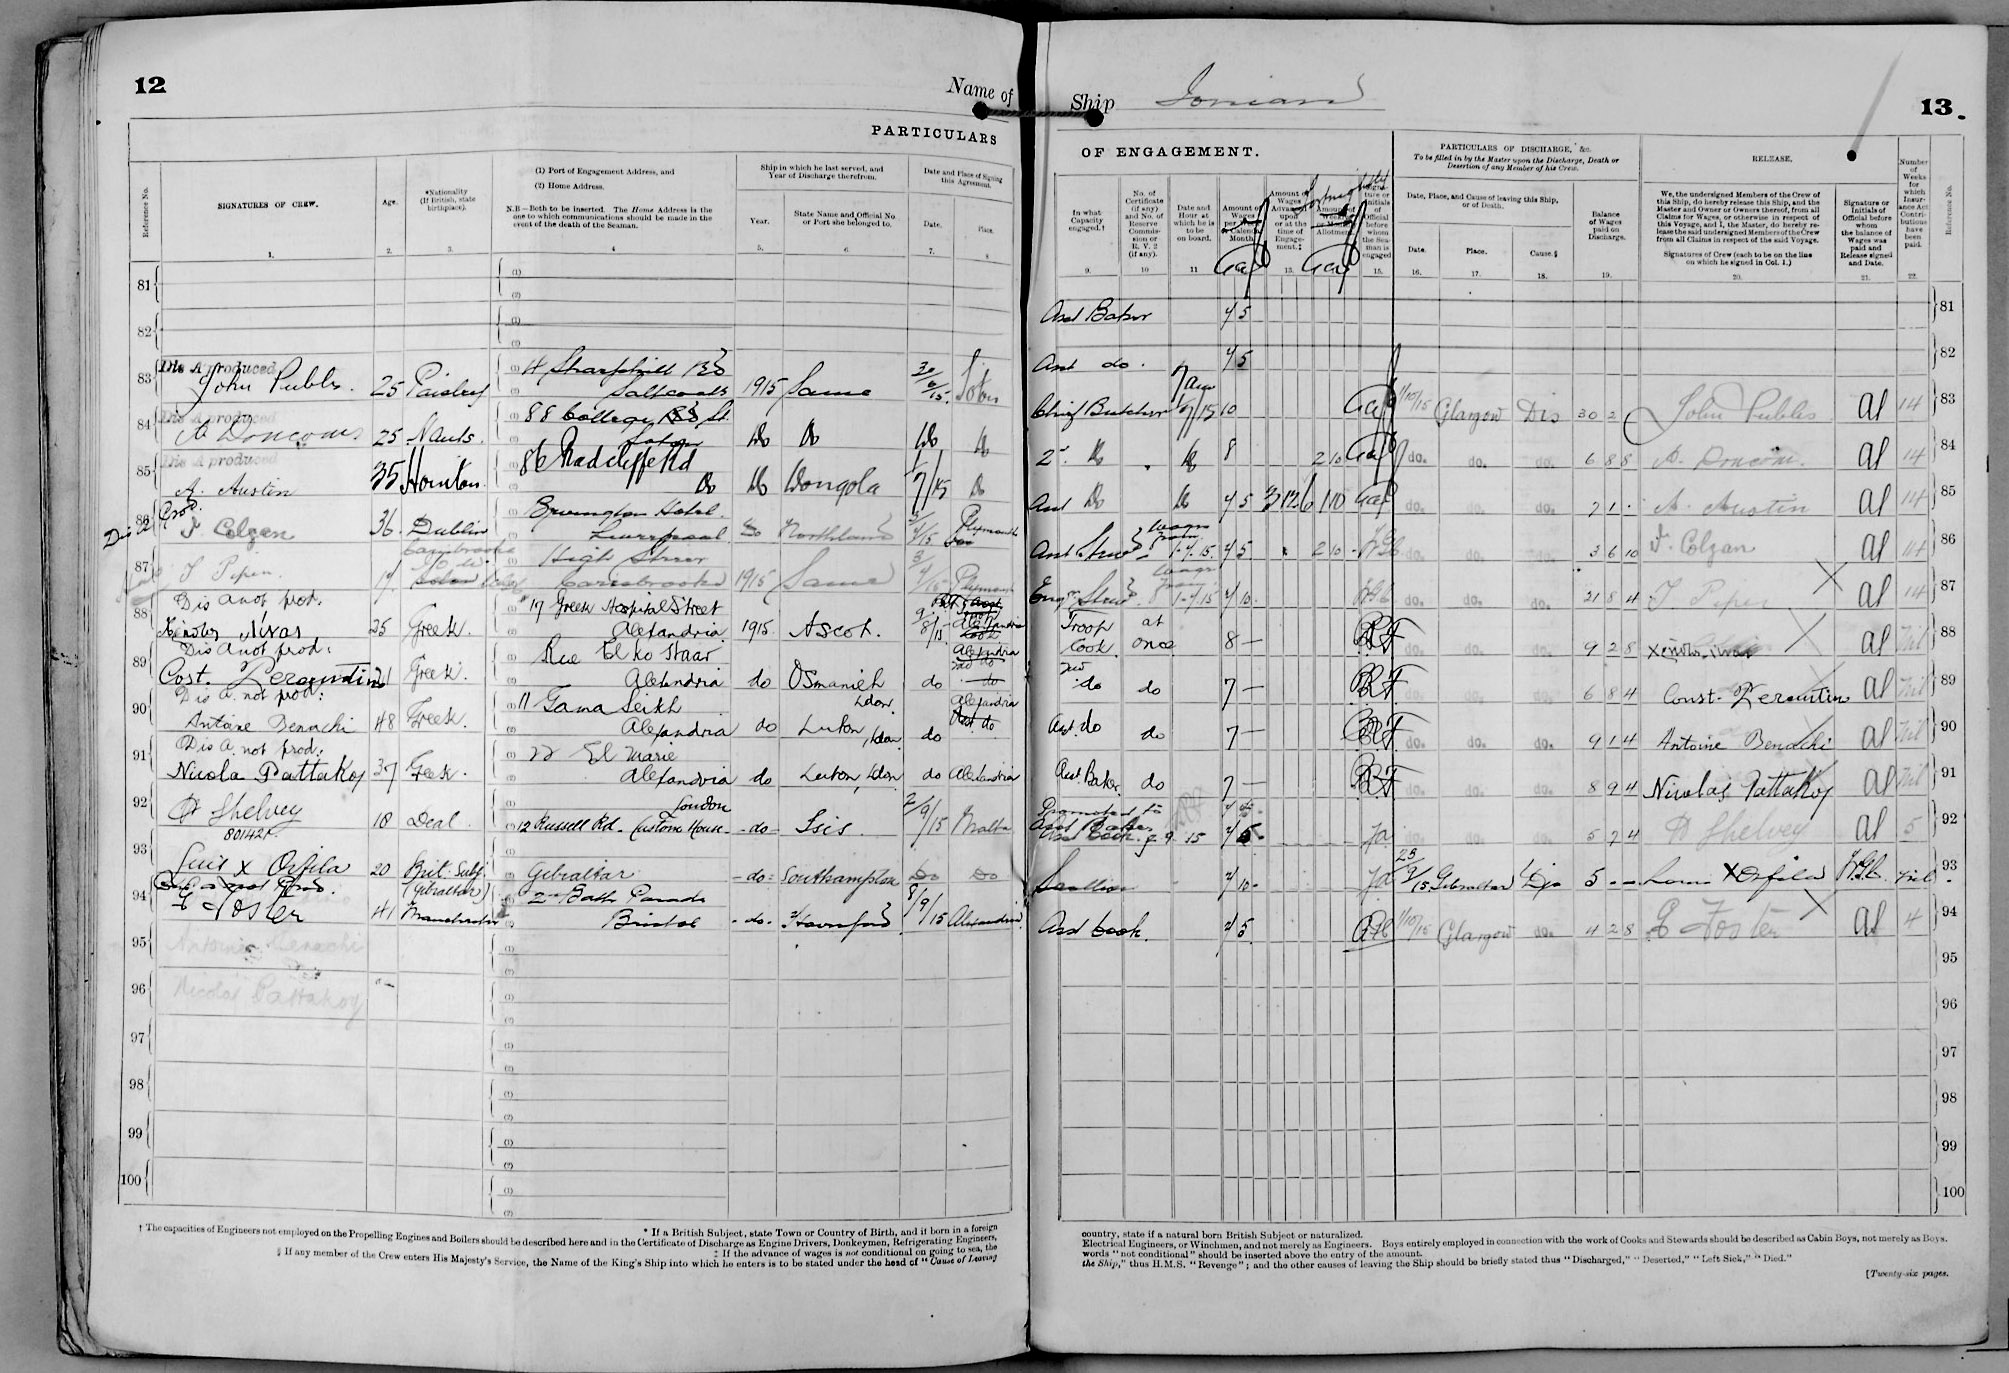 12
Name of
PARTICULARS
Reference No.
SIGNATURES OF CREW.
Age.
*Nationality (If British, state birthplace).
(1) Port of Engagement Address, and
(2) Home Address.
N.B—Both to be inserted. The Home Address is the one to which communications should be made in the event of the death of the Seaman.
Ship in which he last served, and Year of Discharge therefrom.
Year.
State Name and Official No. or Port she belonged to.
Date and Place of Signing this Agreement.
Date.
Place.
1. 2. 3. 4 5. 6. 7. 8
81
82
Dis A produced
83 John Pubbs. 25 Paisley 4 Sharphill Rd Saltcoats 1915 Same 30/6/15 Soton
Dis A produced
84 A Doncom 25 Nauts. 88 College St Soton Do Do Do Do
Dis A produced
85 A. Austin 35 Honiton 86 Radcliffe Rd Do Do Dongola 1/7/15 Do
86 J. Colgan 36. Dublin Hotel Liverpool Do Northland 4/15 Plymouth
87 J Pepin. High Street Carisbrooke 1915 Same Plymouth
Dis A not prod.
88 Nivas 25 Greek. 17 Greek Hospital Street Alexandria 1915 Ascot. 8/15 Alexandria
Dis A not prod:
89 Cost. Zeramtin 21 Greek. Rue El ko Staar Alexandria do Osmanieh do Alexandria
Dis A. not prod:
90 Antoine Benachi 48 Greek. 11 Gama Seikh Alexandria do Luton, Ldon do Alexandria
Dis A. not prod:
91 Nicola Pattakoy 37 Greek. 22 El Marie Alexandria do Luton, Ldon do Alexandria
92 Shelvey 801421 18 Deal 12 Russell Rd. Custom House London do Isis 2/9/15 Malta
93 Luis X Orfila 20 Brit. Subj. (Gibraltar) Gibraltar do Southampton Do Do
94 E Foster 41 Manchester 2 Bath Parade Bristol do 8/9/15 Alexandria
95 Antoine Benachi
96 Nicolas Pattakoy
97
98
99
100
† The capacities of Engineers not employed on the Propelling Engines and Boilers should be described here and in the Certificate of Discharge as Engine Drivers, Donkeymen, Refrigerating Engineers,
* If a British Subject, state Town or Country of Birth, and if born in a foreign
‡ If the advance of wages is not conditional on going to sea, the
§ If any member of the Crew enters His Majesty's Service, the Name of the King's Ship into which he enters is to be stated under the head of "Cause of Leaving
Ship Ionian
13.
OF ENGAGEMENT.
In what Capacity engaged.†
No. of Certificate (if any) and No. of Reserve Commission or R.V. 2 (if any).
Date and Hour at which he is to be on board.
Amount of Wages per Calendar Month
Amount of Wages Advanced upon or at the time of Engagement.‡
Fortnightly
PARTICULARS OF DISCHARGE, &c.
To be filled in by the Master upon the Discharge, Death or Desertion of any Member of his Crew.
Date, Place, and Cause of leaving this Ship, or of Death.
Date. Place. Cause.§
Balance of Wages paid on Discharge.
RELEASE.
We, the undersigned Members of the Crew of this Ship, do hereby release this Ship, and the Master and Owner or Owners thereof, from all Claims for Wages, or otherwise in respect of this Voyage, and I, the Master, do hereby release the said undersigned Members of the Crew from all Claims in respect of the said Voyage.
Signatures of Crew (each to be on the line on which he signed in Col. 1.)
Signature or Initials of Official before whom the balance of Wages was paid and Release signed and Date.
Number of Weeks for which Insurance Act Contributions have been paid.
Reference No.
9. 10 11 13. 15. 16. 17. 18. 19. 20. 21. 22.
Asst Baker 4 5 81
Asst do. 4 5 82
Chief Butcher 7 am 1/7/15 10 1/10/15 Glasgow Dis 30 2 John Pubbs 14 83
2nd Do Do 8 2 10 do. do. do. 6 8 8 A. Doncom 14 84
Asst Do Do 4 5 3 12 6 1 10 do. do. do. 7 1 A. Austin 14 85
Asst Stwd 1.7.15. 4 5 2 10 do. do. do. 3 6 10 J. Colgan 14 86
Engr Stwd 1.7.15 4 10 do. do. do. 21 8 4 J Pepin 14 87
Troop Cook at once 8 — do. do. do. 9 2 8 Nil 88
2nd do do 7 — do. do. do. 6 8 4 Const. Zeramtin Nil 89
Asst. do do 7 — do. do. do. 9 1 4 Antoine Benachi Nil 90
Asst Baker do 7 — do. do. do. 8 9 4 Nicolas Pattakoy Nil 91
Promoted to Asst Baker
Asst Cook 9 15 4 5 do. do. do. 5 7 4 Shelvey 5 92
Scullion 4 10 25/9/15 Gibraltar Dis 5 — — Louis X Orfila Nil 93
Asst Cook. 4 5 1/10/15 Glasgow do. 4 2 8 E Foster 4 94
95
96
97
98
99
100
country, state if a natural born British Subject or naturalized.
Electrical Engineers, or Winchmen, and not merely as Engineers. Boys entirely employed in connection with the work of Cooks and Stewards should be described as Cabin Boys, not merely as Boys.
words "not conditional" should be inserted above the entry of the amount.
the Ship," thus H.M.S. "Revenge"; and the other causes of leaving the Ship should be briefly stated thus "Discharged," "Deserted," "Left Sick," "Died."
[Twenty-six pages.